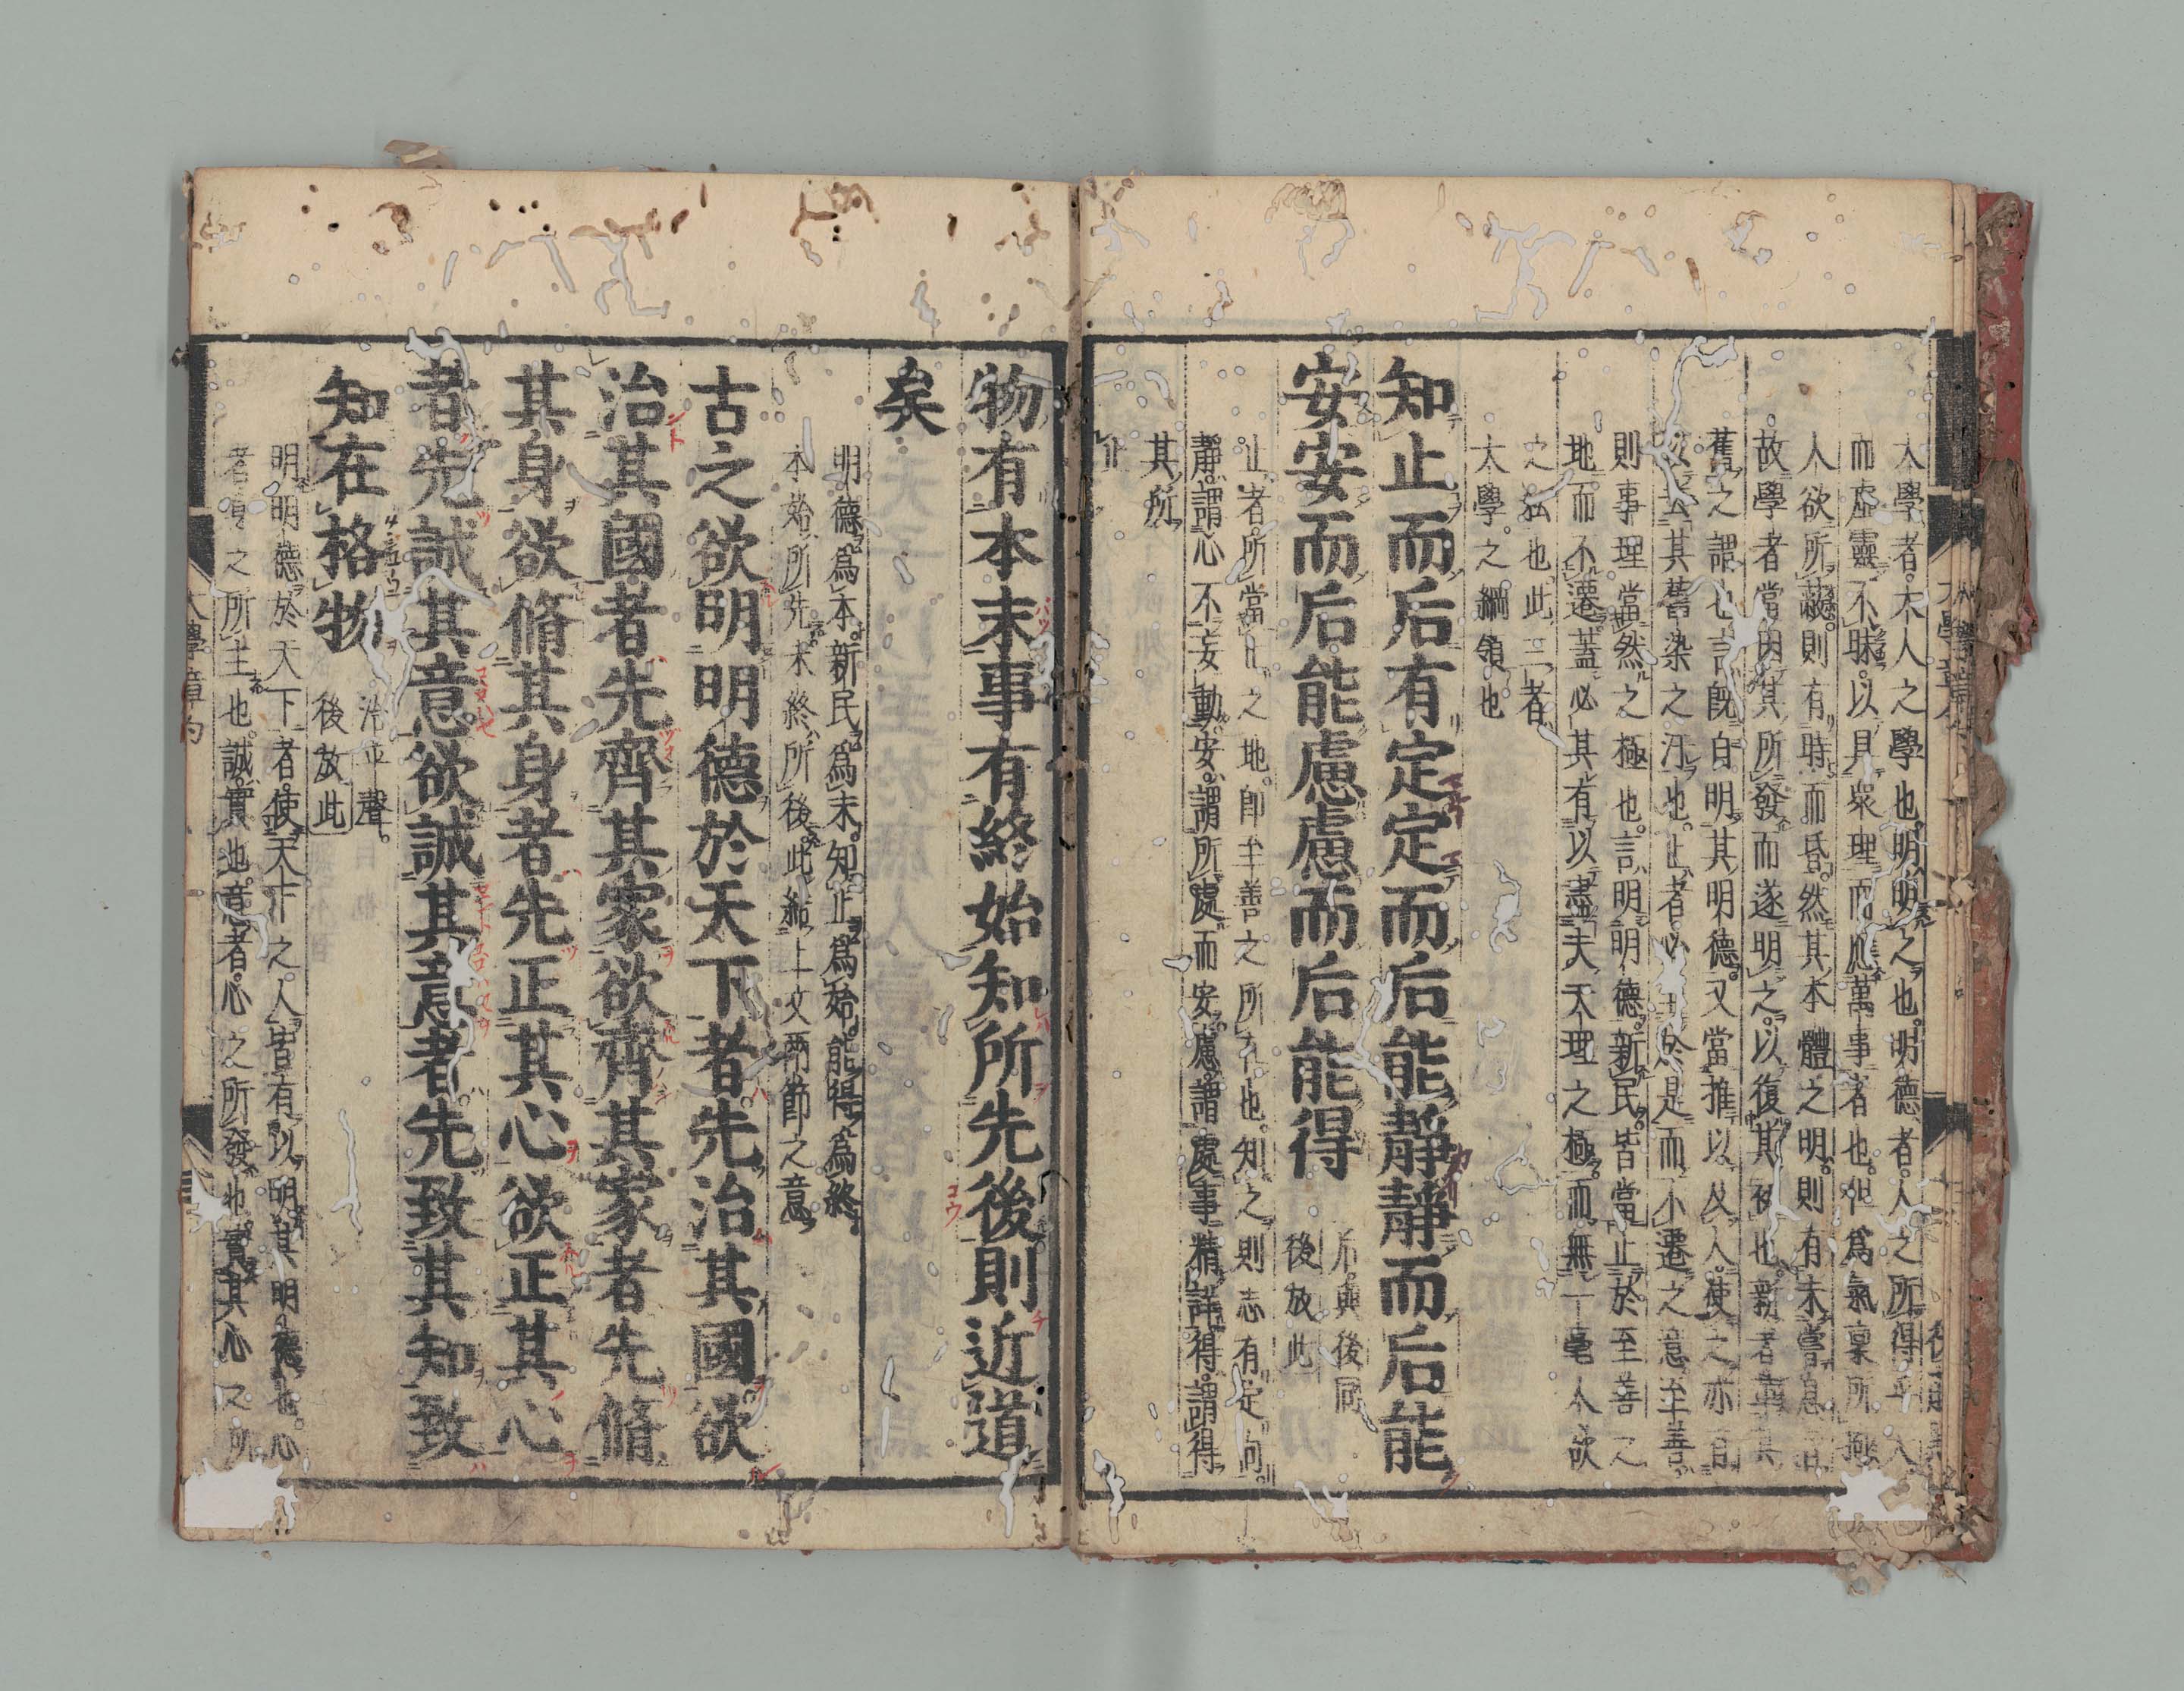 大學者。大人之學也。明明之也。明德者。人之所得乎
而虛靈不昧。以具衆理而應萬事者也。但爲氣稟所拘
人欲所蔽。則有時而昏。然其本體之明。則有未嘗息者
故學者當因其所發而遂明之。以復其初也。新者革其
舊之謂也言既自明其明德。又當推以及人。使之亦有
去其舊染之汙也。止者。必至於是而不遷之意至善。
則事理當然之極也。言明明德。新民。皆當止於至善之
地而不遷。蓋必其有以盡夫天理之極。而無一毫人欲
之私也。此三者
大學。之綱領也
知止而后有定定而后能靜靜而后能
安安而后能慮慮而后能得
后。與後同
後放此
止者。所當止之地。卽至善之所在也。知之則志有定向。
靜。謂心不妄動。安。謂所處而安。慮。謂處事精詳。得。謂得
其所
止
物有本末事有終始知所先後則近道
矣
明德爲本。新民爲末。知止爲始。能得爲終。
本始所先。末終所後。此結上文兩節之意。
古之欲明明德於天下者先治其國欲
治其國者先齊其家欲齊其家者先脩
其身欲脩其身者先正其心欲正其心
者先誠其意欲誠其意者先致其知致
知在格物
治平聲。
後放此
明明德於天下者。使天下之。人皆有以明其明德也。心
者身之所主也。誠。實也。意者。心之所發也。實其心之所
大學章句